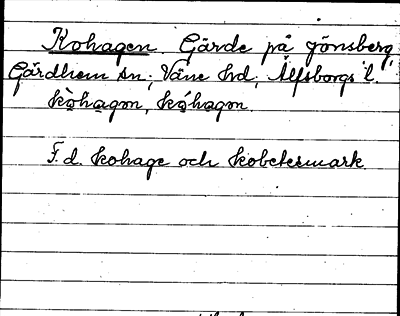 Kohagen. Gärde på Jönsberg,
Gärdhem sn; Väne hd; Älfsborgs l.
kòhagαn, kóhagαn.
F.d. kohage och kobetesmark.